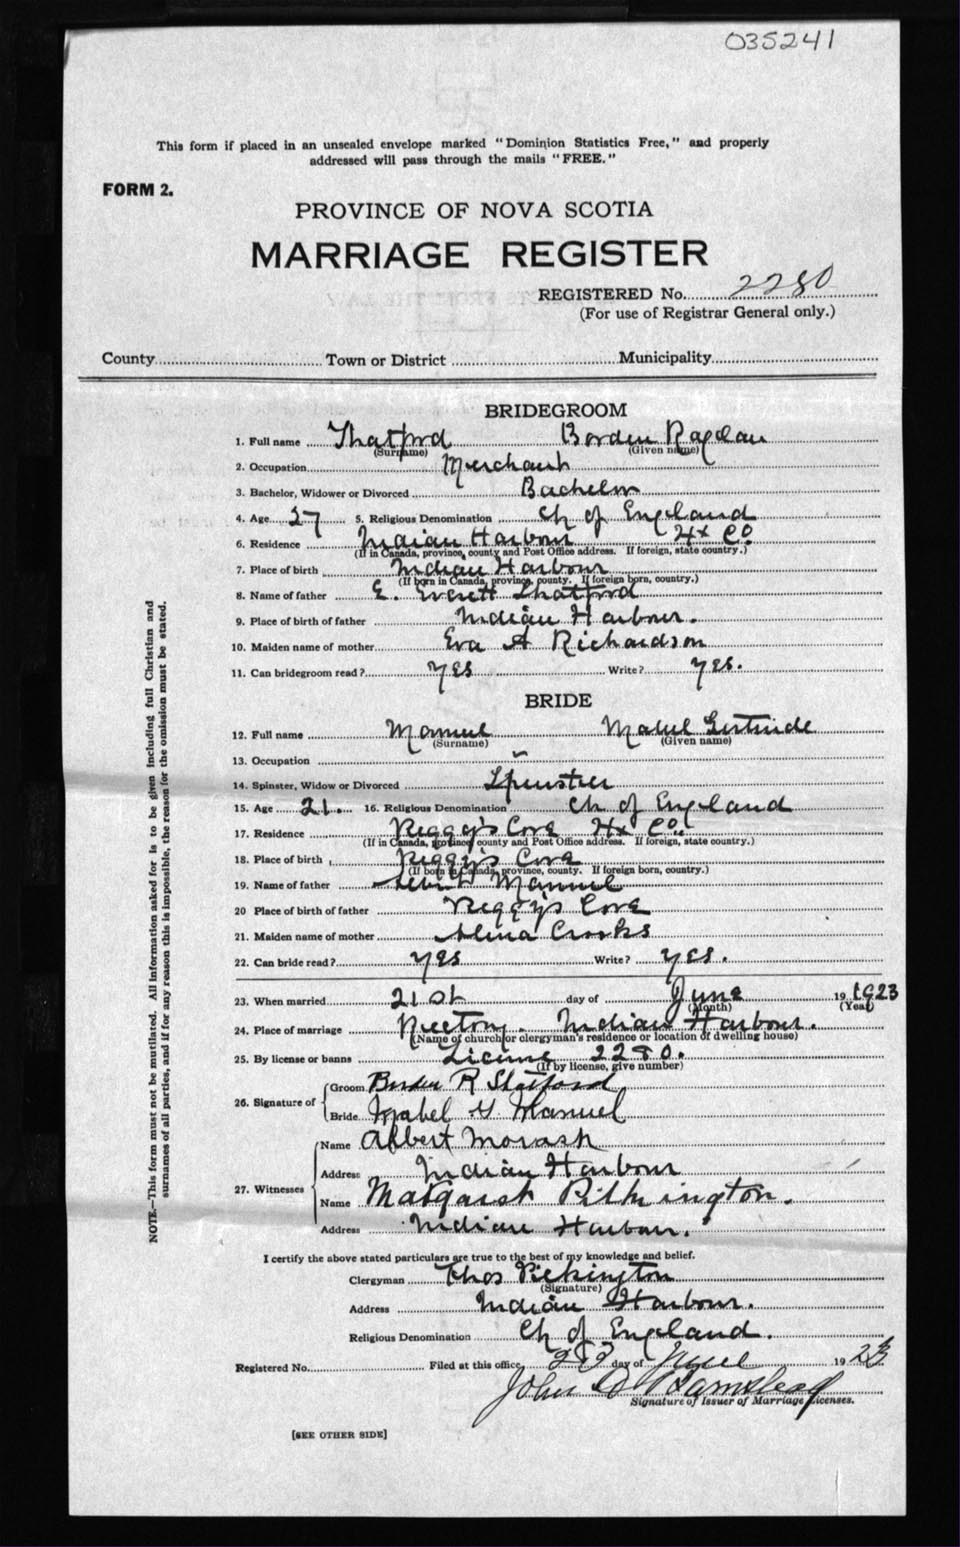 035241
This form if placed in an unsealed envelope marked "Dominion Statistics Free," and properly
addressed will pass through the mails "FREE."
FORM 2.
PROVINCE OF NOVA SCOTIA
MARRIAGE REGISTER
REGISTERED No. 2280
(For use of Registrar General only.)
County Town or District Municipality
BRIDEGROOM
1. Full name Shatford Borden
(Surname) (Given name)
2. Occupation Merchant
3. Bachelor, Widower or Divorced Bachelor
4. Age 27 5. Religious Denomination Ch of England
6. Residence Indian Harbour Hx Co
(If in Canada, province, county and Post Office address. If foreign, state country.)
7. Place of birth Indian Harbour
(If born in Canada, province, county. If foreign born, country.)
8. Name of father E. Everett Shatford
9. Place of birth of father Indian Harbour.
10. Maiden name of mother Eva A Richardson
11. Can bridegroom read? yes Write? yes.
BRIDE
12. Full name Manuel Mabel Gertrude
(Surname) (Given name)
13. Occupation
14. Spinster, Widow or Divorced Spinster
15. Age 21. 16. Religious Denomination Ch of England
17. Residence Peggy's Cove Hx Co.
(If in Canada, province, county and Post Office address. If foreign, state country.)
18. Place of birth Peggy's Cove
(If born in Canada, province, county. If foreign born, country.)
19. Name of father Manuel
20 Place of birth of father Peggys Cove
21. Maiden name of mother Crooks
22. Can bride read? yes Write? yes.
23. When married 21st day of June 19 1923
(Month) (Year)
24. Place of marriage Rectory. Indian Harbour.
(Name of church or clergyman's residence or location of dwelling house)
25. By license or banns License 2280.
(If by license, give number)
26. Signature of Groom Borden R Shatford
Bride Mabel G Manuel
27. Witnesses Name Albert Morash
Address Indian Harbour
Name Margaret Pilkington.
Address Indian Harbour.
I certify the above stated particulars are true to the best of my knowledge and belief.
Clergyman Thos Pilkington
(Signature)
Address Indian Harbour.
Religious Denomination Ch of England.
Registered No. Filed at this office day of June 19 23
John
Signature of Issuer of Marriage Licenses.
[SEE OTHER SIDE]
NOTE.—This form must not be mutilated. All information asked for is to be given including full Christian and
surnames of all parties, and if for any reason this is impossible, the reason for the omission must be stated.